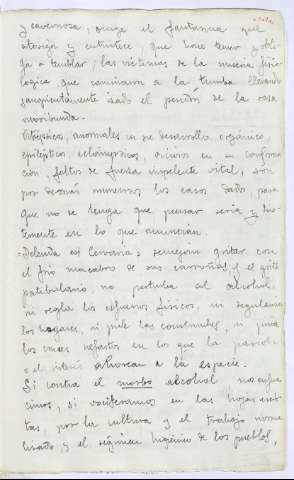 y cavernosa; surge el fantasma que
aterroriza y entristece, que hace temer y obli-
ga a temblar; las víctimas de la miseria fisio-
lógica que caminan a la tumba llevando
sangrientamente izado el pendón de la raza
moribunda.
Raquíticos, anormales en su desarrollo orgánico,
epilépticos, eclámpticos, viciosos en su conforma-
ción, faltos de fuerza impelente vital, son
por demás inmensos los casos dados para
que no se tenga que pensar seria y
temente en lo que anuncian.
Delenda est Cervecería: semejan gritar con
el frío macabro de sus carroñas, y el grito
patibulario no perturba al alcohol,
ni regla los esfuerzos físicos, ni regulariza
los hogares, ni pule las costumbres, ni
los males nefastos en los que la pasión
o el interés ahorcan a la especie.
Si contra el morbo alcohol no
cimos, si vociferamos en las hojas escri-
tas por la cultura y el trabajo norma-
lizado y el régimen higiénico de los pueblos,